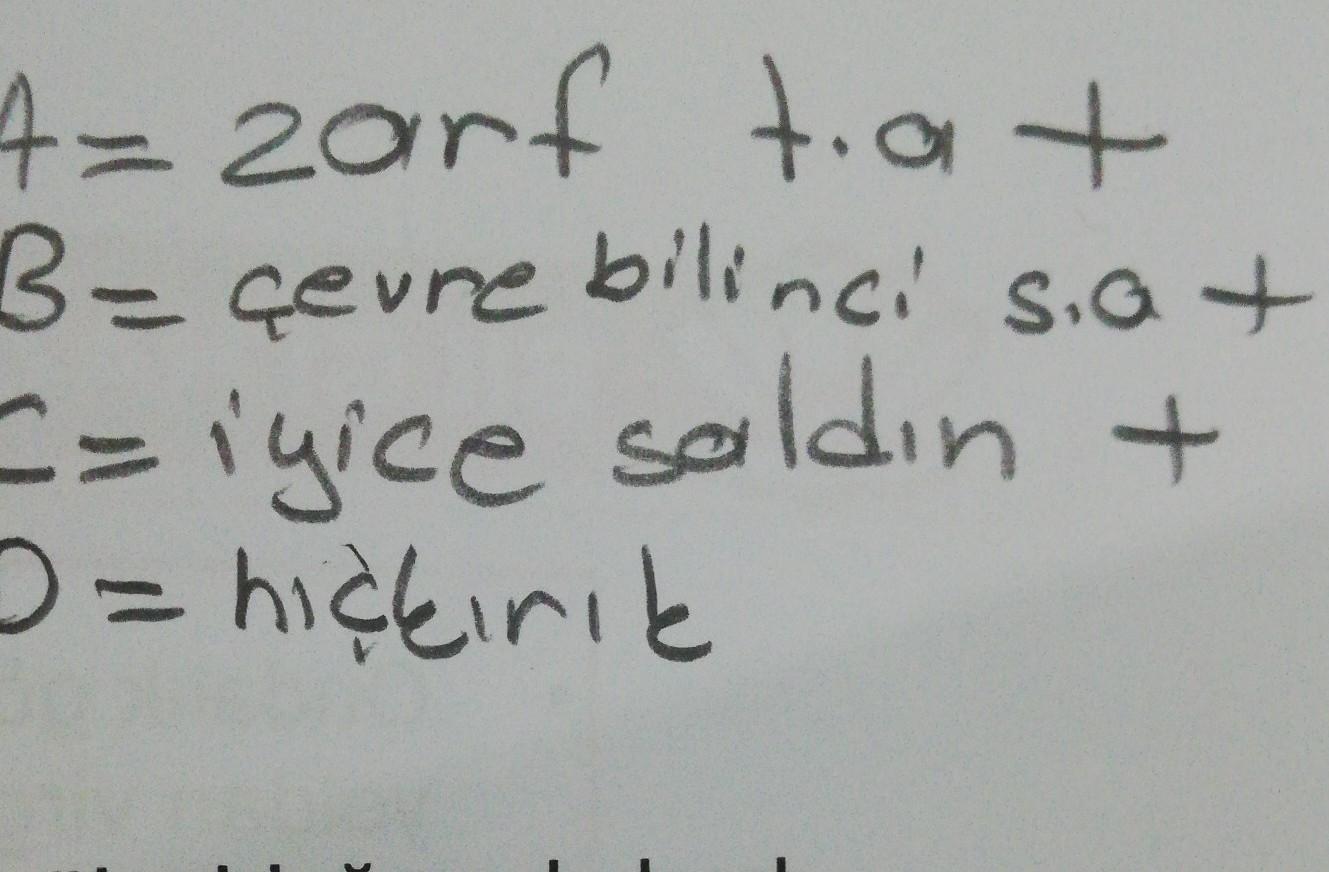 A= zarf t.a +
B= çevre bilinci s.a +
C= iyice saldın +
D= hıçkırık